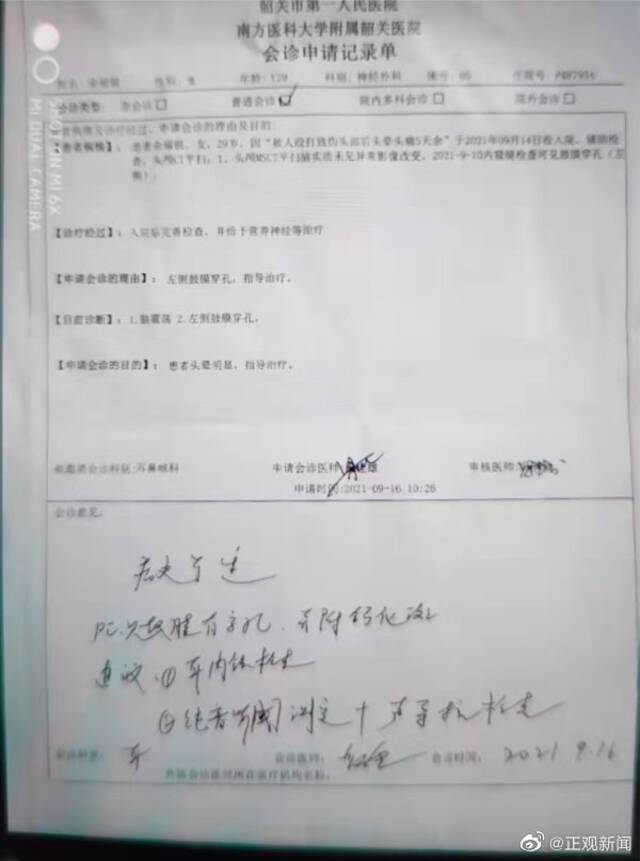 韶关市第一人民医院
南方医科大学附属韶关医院
会诊申请记录单
性别: 女 年龄: Y29 科别: 神经外科 床号: 05 住院号:
会诊类型: 急会诊 普通会诊 院内多科会诊 院外会诊
病情及诊疗经过、申请会诊的理由及目的:
【患者病情】: 女, 29岁, 因“被人殴打致伤头部后头晕头痛5天余”于2021年09月14日收入院。辅助检
查: 头颅CT平扫: 1、头颅MSCT平扫脑实质未见异常影像改变。2021-9-10内窥镜检查可见鼓膜穿孔(左
侧)。
【诊疗经过】: 入院后完善检查, 并给予营养神经等治疗
【申请会诊的理由】: 左侧鼓膜穿孔, 指导治疗。
【目前诊断】: 1.脑震荡 2.左侧鼓膜穿孔。
【申请会诊的目的】: 患者头晕明显, 指导治疗。
拟邀请会诊科别: 耳鼻喉科 申请会诊医师: 审核医师:
申请时间: 2021-09-16 10:26
会诊意见:
病史
鼓膜有穿孔
建议: ① 耳内镜检查
② 纯音 测定 + 声导抗检查
会诊科室: 耳 会诊医师: 会诊时间: 2021 9.16
外院会诊医师所在医疗机构名称:
MI DUAL CAMERA
SHOT ON MI 6X
@正观新闻